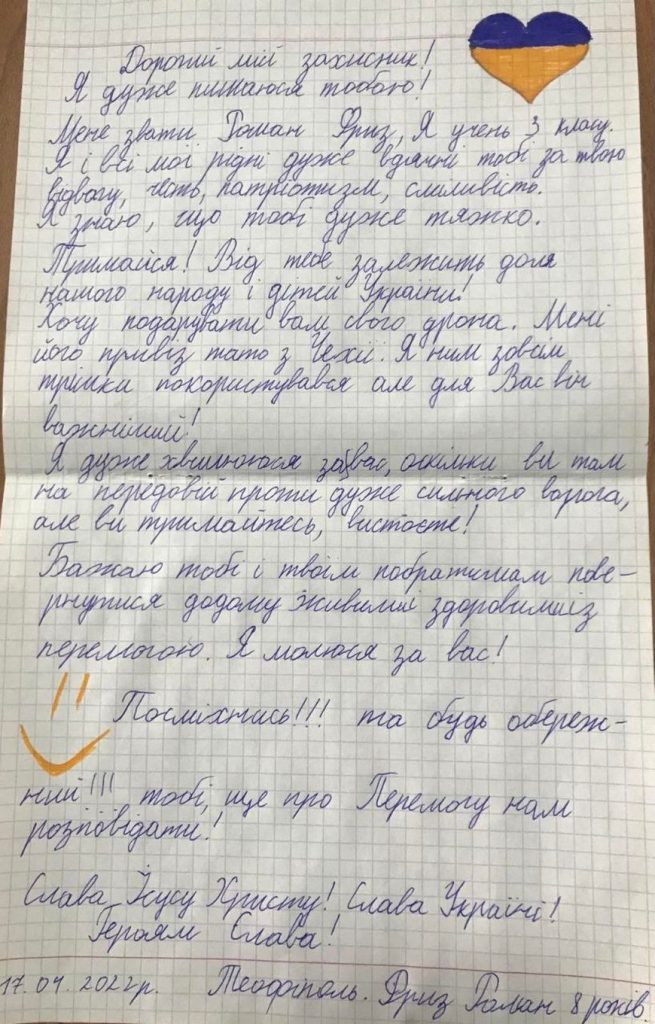 Дорогий мій захисник!
Я дуже пишаюся тобою!
Мене звати Роман Дриз, Я учень 3 класу.
Я і всі мої рідні дуже вдячні тобі за твою
відвагу, честь, патріотизм, сміливість.
Я знаю, що тобі дуже тяжко.
Тримайся! Від тебе залежить доля
нашого народу і дітей України!
Хочу подарувати вам свого дрона. Мені
його привіз тато з Чехії. Я ним зовсім
трішки покористувався але для Вас він
важніший!
Я дуже хвилююся за вас, оскільки ви там
на передовій проти дуже сильного ворога,
але ви тримайтесь, вистоєте!
Бажаю тобі і твоїм побратимам пове-
рнутися додому живими і здоровими із
перемогою. Я молюся за вас!
Посміхнись!!! та будь обереж-
ний!!! тобі, ще про Перемогу нам
розповідати!
Слава Ісусу Христу! Слава Україні!
Героям Слава!
17.04.2022р. Теофіполь. Дриз Роман 8 років.